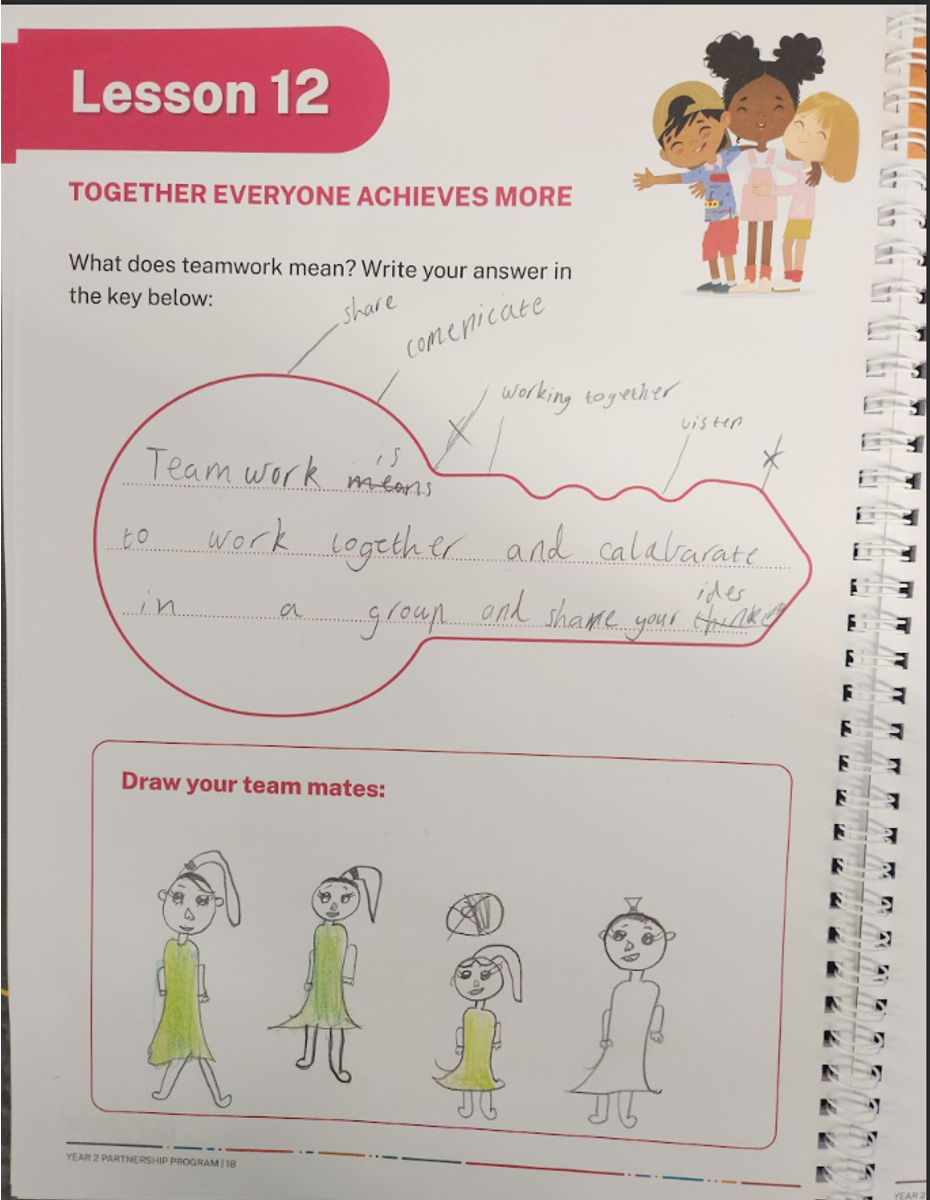 Lesson 12
TOGETHER EVERYONE ACHIEVES MORE
What does teamwork mean? Write your answer in
the key below:
share
comenicate
working together
listen
is
Teamwork means
to work together and calabarate
ides
in a group and share your
Draw your team mates:
YEAR 2 PARTNERSHIP PROGRAM | 18
YEAR 2